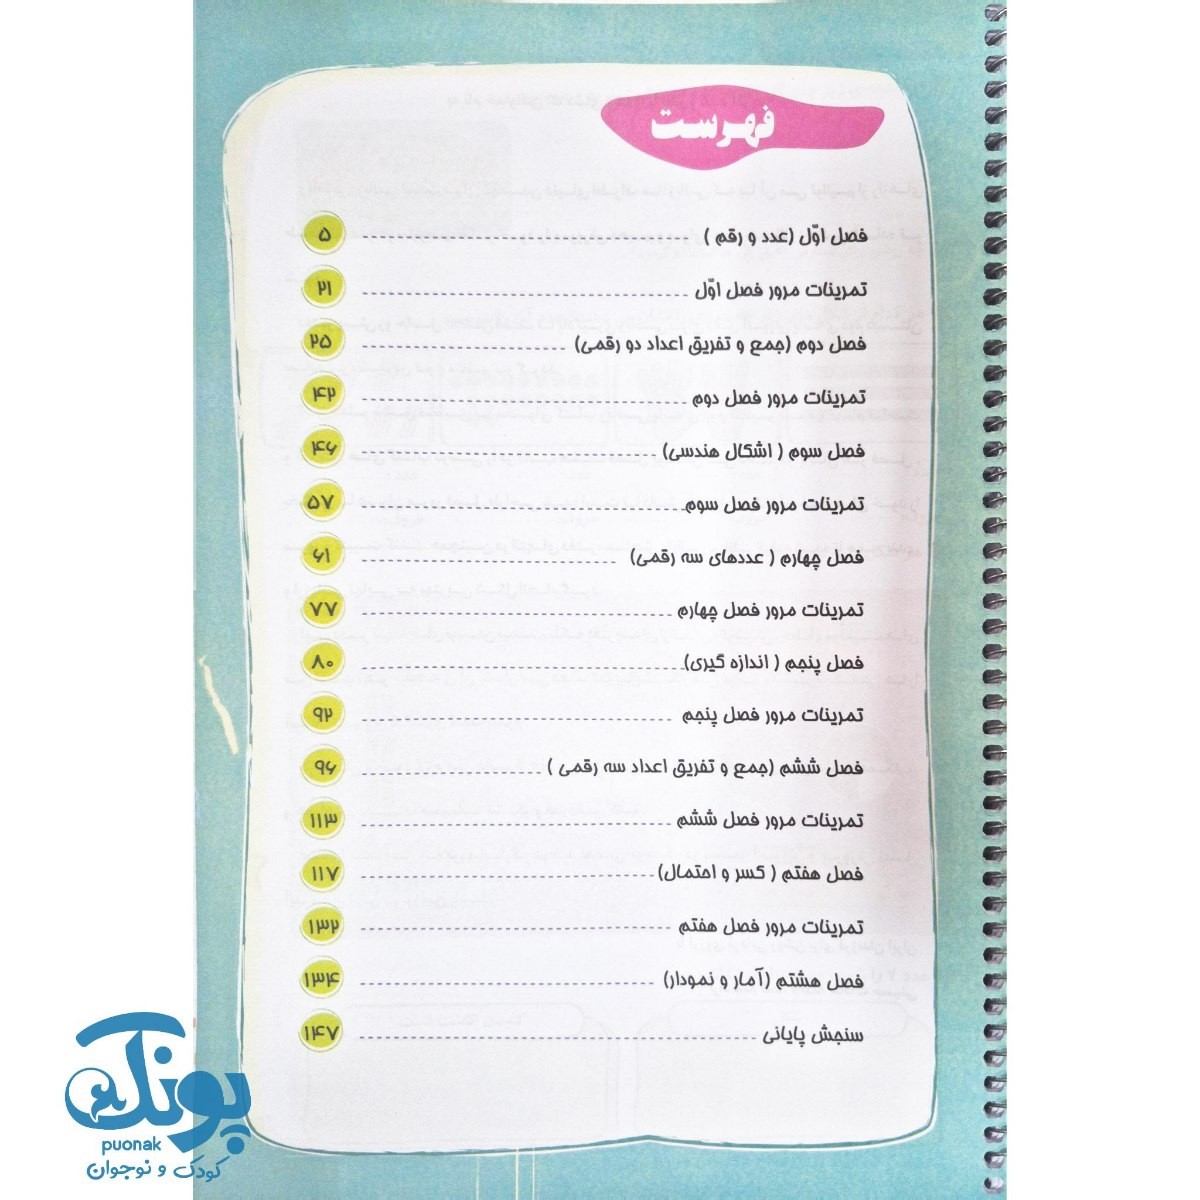 فهرست
فصل اوّل (عدد و رقم ) ۵
تمرینات مرور فصل اوّل ۲۱
فصل دوم (جمع و تفریق اعداد دو رقمی) ۲۵
تمرینات مرور فصل دوم ۴۲
فصل سوم ( اشکال هندسی) ۴۶
تمرینات مرور فصل سوم ۵۷
فصل چهارم ( عددهای سه رقمی) ۶۱
تمرینات مرور فصل چهارم ۷۷
فصل پنجم ( اندازه گیری) ۸۰
تمرینات مرور فصل پنجم ۹۲
فصل ششم (جمع و تفریق اعداد سه رقمی ) ۹۶
تمرینات مرور فصل ششم ۱۱۳
فصل هفتم ( کسر و احتمال) ۱۱۷
تمرینات مرور فصل هفتم ۱۳۲
فصل هشتم (آمار و نمودار) ۱۳۴
سنجش پایانی ۱۴۷
پونک
puonak
کودک و نوجوان